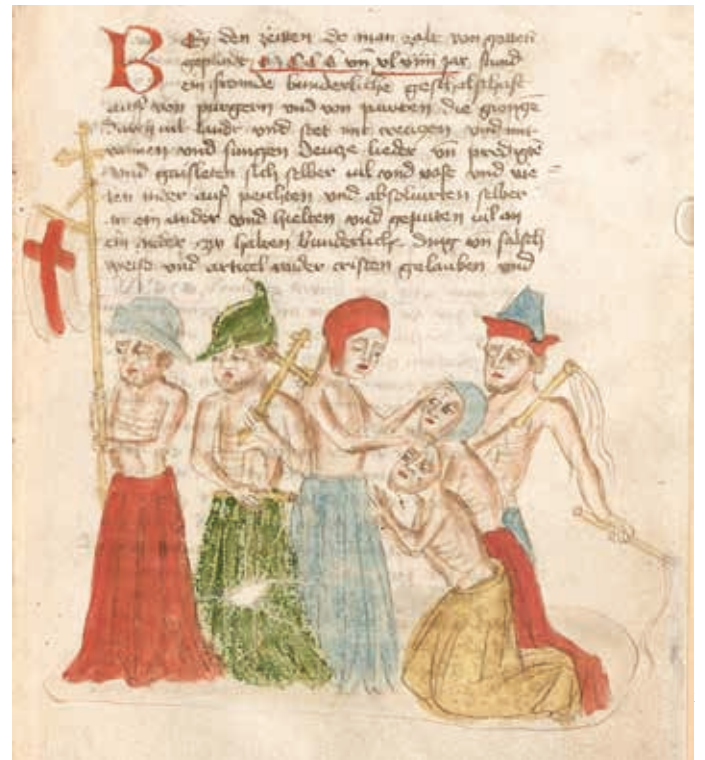 BEy den zeitten do man zalt von gottes
gepurdt m c c c vn xl viiii jar stund
ein fromde bunderliche geschelschaft
auf von purgern vnd von pawren die gienge
durch vil landt vnd stet mit vnd mit
vannen vnd sungen deucze lieder vn predigte
vnd gaisleten sich selber vil vnd vast vnd vie
len nider auf peichten vnd absolvirten selber
an ein ander vnd hielten vnd geputen vil an
ein ander zw halten bunderliche ding vn falsch
vnd articel wider cristen gelauben vnd